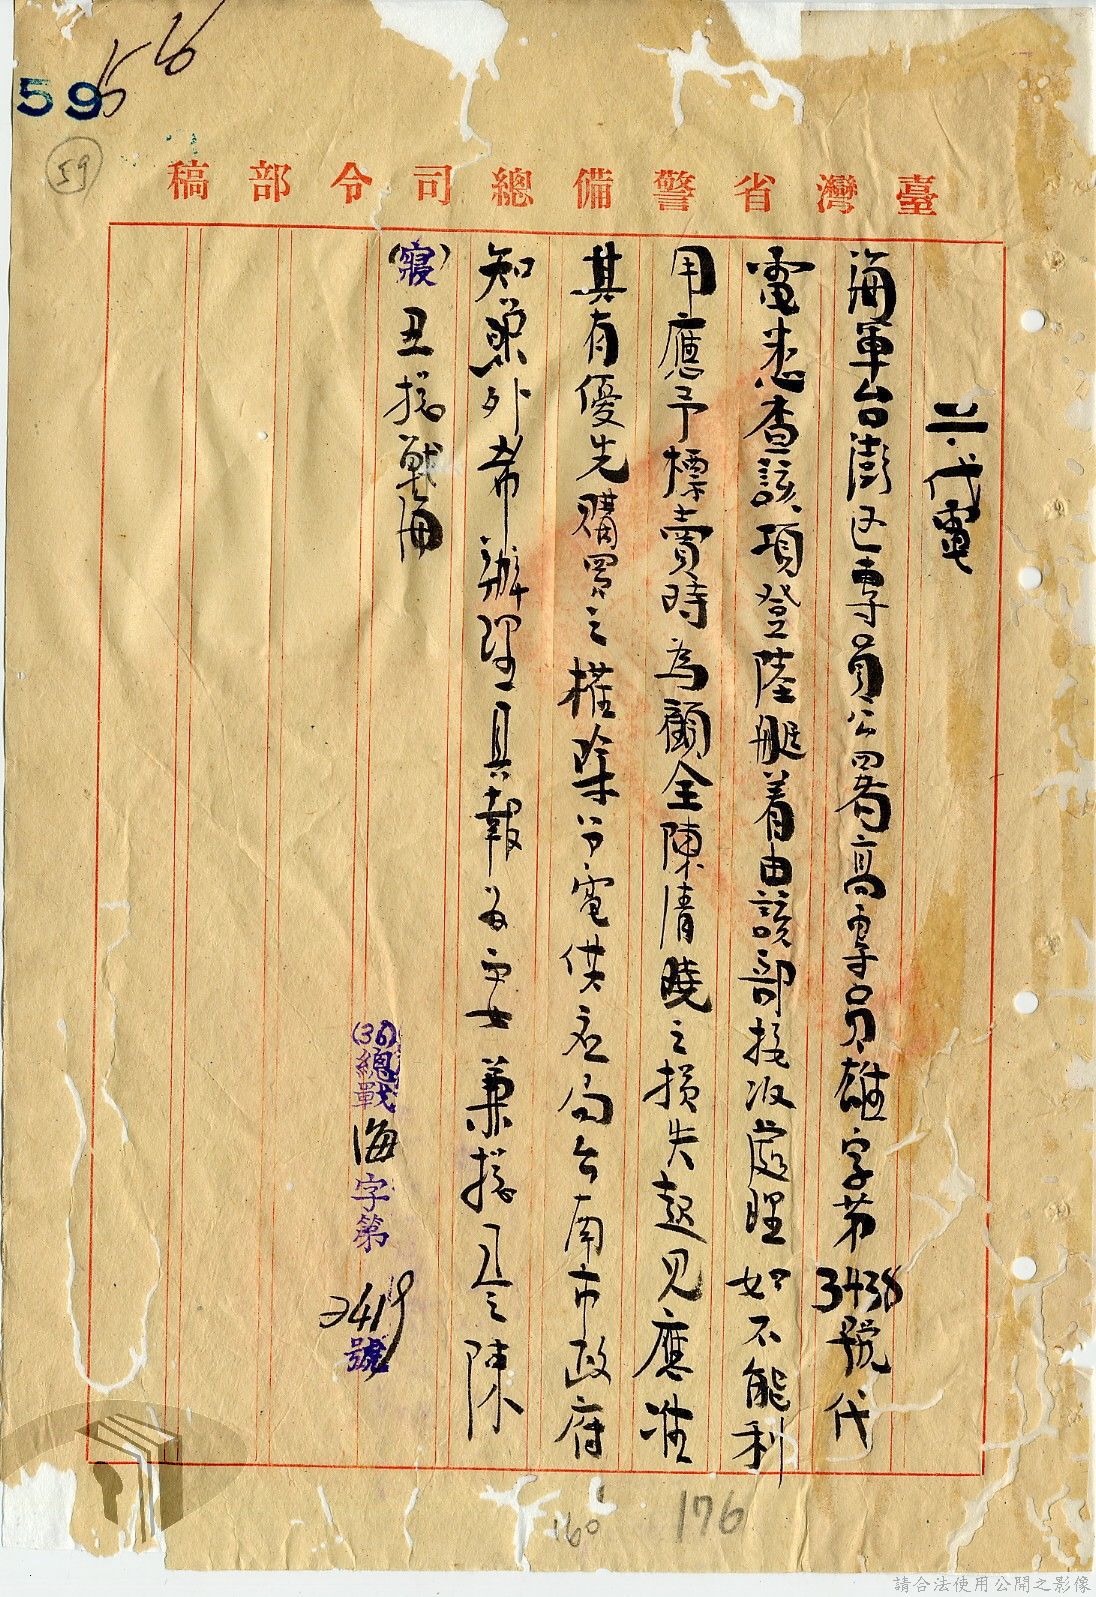 56
59
59
臺灣省警備總司令部稿
二.代電
海軍台澎區專員公署高專員雄字第3438號代
電悉查該項登陸艇着由該部接收處理如不能利
用應予標賣時為顧全陳清曉之損失起見應准
其有優先購買之權除分電供應局台南市政府
知照外希辦理具報為要兼總司令陳
(寢)丑總戰海
(36)總戰海字第2419號
160
176
請合法使用公開之影像